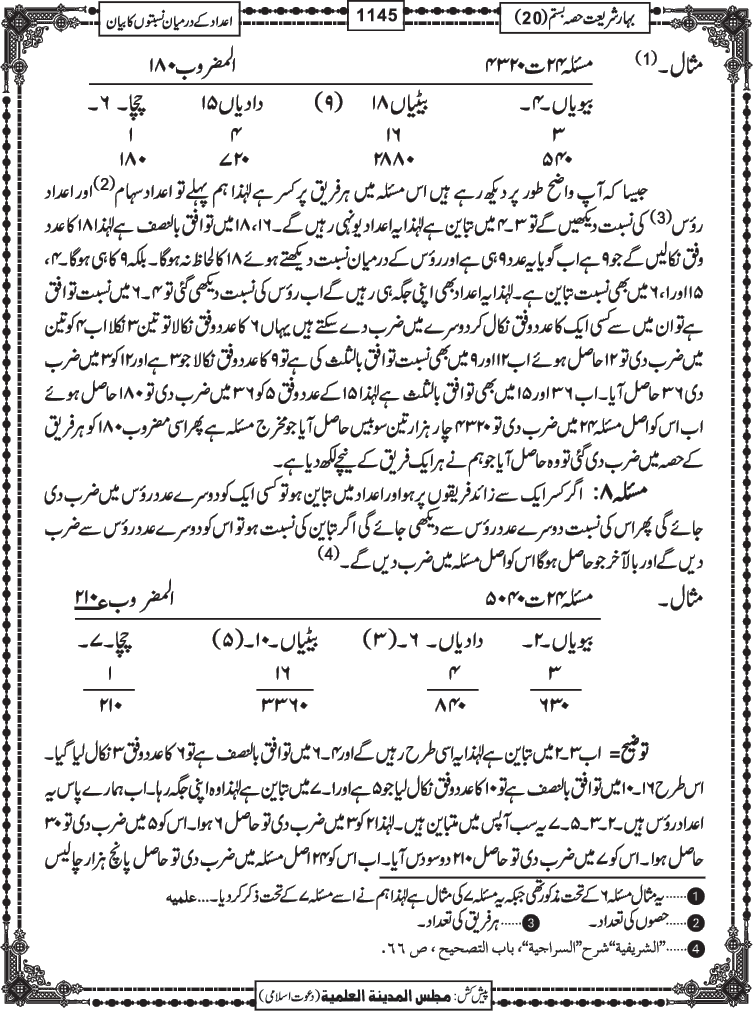 بہارِ شریعت حصہ بستم (20)
1145
اعداد کے درمیان نسبتوں کا بیان
مثال۔ (1) مسئلہ ۲۴ ت ۴۳۲۰ المضروب ۱۸۰
بیویاں۔۴۔ بیٹیاں ۱۸ (۹) دادیاں ۱۵ چچا۔ ۶۔
۳ ۱۶ ۴ ۱
۵۴۰ ۲۸۸۰ ۷۲۰ ۱۸۰
جیسا کہ آپ واضح طور پر دیکھ رہے ہیں اس مسئلہ میں ہر فریق پر کسر ہے لہٰذا ہم پہلے تو اعداد سہام (2) اور اعداد
رؤس (3) کی نسبت دیکھیں گے تو ۳۔۴ میں تباین ہے لہٰذا یہ اعداد یونہی رہیں گے۔ ۱۶، ۱۸ میں توافق بالنصف ہے لہٰذا ۱۸ کا عدد
وفق نکالیں گے جو ۹ ہے اب گویا یہ عدد ۹ ہی ہے اور رؤس کے درمیان نسبت دیکھتے ہوئے ۱۸ کا لحاظ نہ ہوگا۔ بلکہ ۹ کا ہی ہوگا۔ ۴،
۱۵ اور ۱، ۶ میں بھی نسبت تباین ہے۔ لہٰذا یہ اعداد بھی اپنی جگہ ہی رہیں گے اب رؤس کی نسبت دیکھی گئی تو ۴۔ ۶ میں نسبت توافق
ہے تو ان میں سے کسی ایک کا عدد وفق نکال کر دوسرے میں ضرب دے سکتے ہیں یہاں ۶ کا عدد وفق نکالا تو تین ۳ نکلا اب ۴ کو تین
میں ضرب دی تو ۱۲ حاصل ہوئے اب ۱۲ اور ۹ میں بھی نسبت توافق بالثلث کی ہے تو ۹ کا عدد وفق نکالا جو ۳ ہے اور ۱۲ کو ۳ میں ضرب
دی ۳۶ حاصل آیا۔ اب ۳۶ اور ۱۵ میں بھی توافق بالثلث ہے لہٰذا ۱۵ کے عدد وفق ۵ کو ۳۶ میں ضرب دی تو ۱۸۰ حاصل ہوئے
اب اس کو اصل مسئلہ ۲۴ میں ضرب دی تو ۴۳۲۰ چار ہزار تین سو بیس حاصل آیا جو مخرج مسئلہ ہے پھر اسی مضروب ۱۸۰ کو ہر فریق
کے حصہ میں ضرب دی گئی تو وہ حاصل آیا جو ہم نے ہر ایک فریق کے نیچے لکھ دیا ہے۔
مسئلہ ۸: اگر کسر ایک سے زائد فریقوں پر ہو اور اعداد میں تباین ہو تو کسی ایک کو دوسرے عدد رؤس میں ضرب دی
جائے گی پھر اس کی نسبت دوسرے عدد رؤس سے دیکھی جائے گی اگر تباین کی نسبت ہو تو اس کو دوسرے عدد رؤس سے ضرب
دیں گے اور بالآخر جو حاصل ہوگا اس کو اصل مسئلہ میں ضرب دیں گے۔ (4)
مثال۔ مسئلہ ۲۴ ت ۵۰۴۰ المضروب ع ۲۱۰
بیویاں۔۲۔ دادیاں۔ ۶۔(۳) بیٹیاں۔۱۰۔(۵) چچا۔۷۔
۳ ۴ ۱۶ ۱
۶۳۰ ۸۴۰ ۳۳۶۰ ۲۱۰
توضیح= اب ۳۔۲ میں تباین ہے لہٰذا یہ اسی طرح رہیں گے اور ۴۔ ۶ میں توافق بالنصف ہے تو ۶ کا عدد وفق ۳ نکال لیا گیا۔
اس طرح ۱۶۔ ۱۰ میں توافق بالنصف ہے تو ۱۰ کا عدد وفق نکال لیا جو ۵ ہے اور ۱۔ ۷ میں تباین ہے لہٰذا وہ اپنی جگہ رہا۔ اب ہمارے پاس یہ
اعداد رؤس ہیں۔ ۲۔۳۔۵۔۷ یہ سب آپس میں متباین ہیں۔ لہٰذا ۲ کو ۳ میں ضرب دی تو حاصل ۶ ہوا۔ اس کو ۵ میں ضرب دی تو ۳۰
حاصل ہوا۔ اس کو ۷ میں ضرب دی تو حاصل ۲۱۰ دو سو دس آیا۔ اب اس کو ۲۴ اصل مسئلہ میں ضرب دی تو حاصل پانچ ہزار چالیس
1 ......یہ مثال مسئلہ ۶ کے تحت مذکور تھی جبکہ یہ مسئلہ ۷ کی مثال ہے لہٰذا ہم نے اسے مسئلہ ۷ کے تحت ذکر کر دیا۔...علمیہ
2 ......حصوں کی تعداد۔ 3 ......ہر فریق کی تعداد۔
4 ......"الشریفیة" شرح "السراجیة"، باب التصحیح، ص ۶۶.
پیش کش: مجلس المدینة العلمیة (دعوتِ اسلامی)